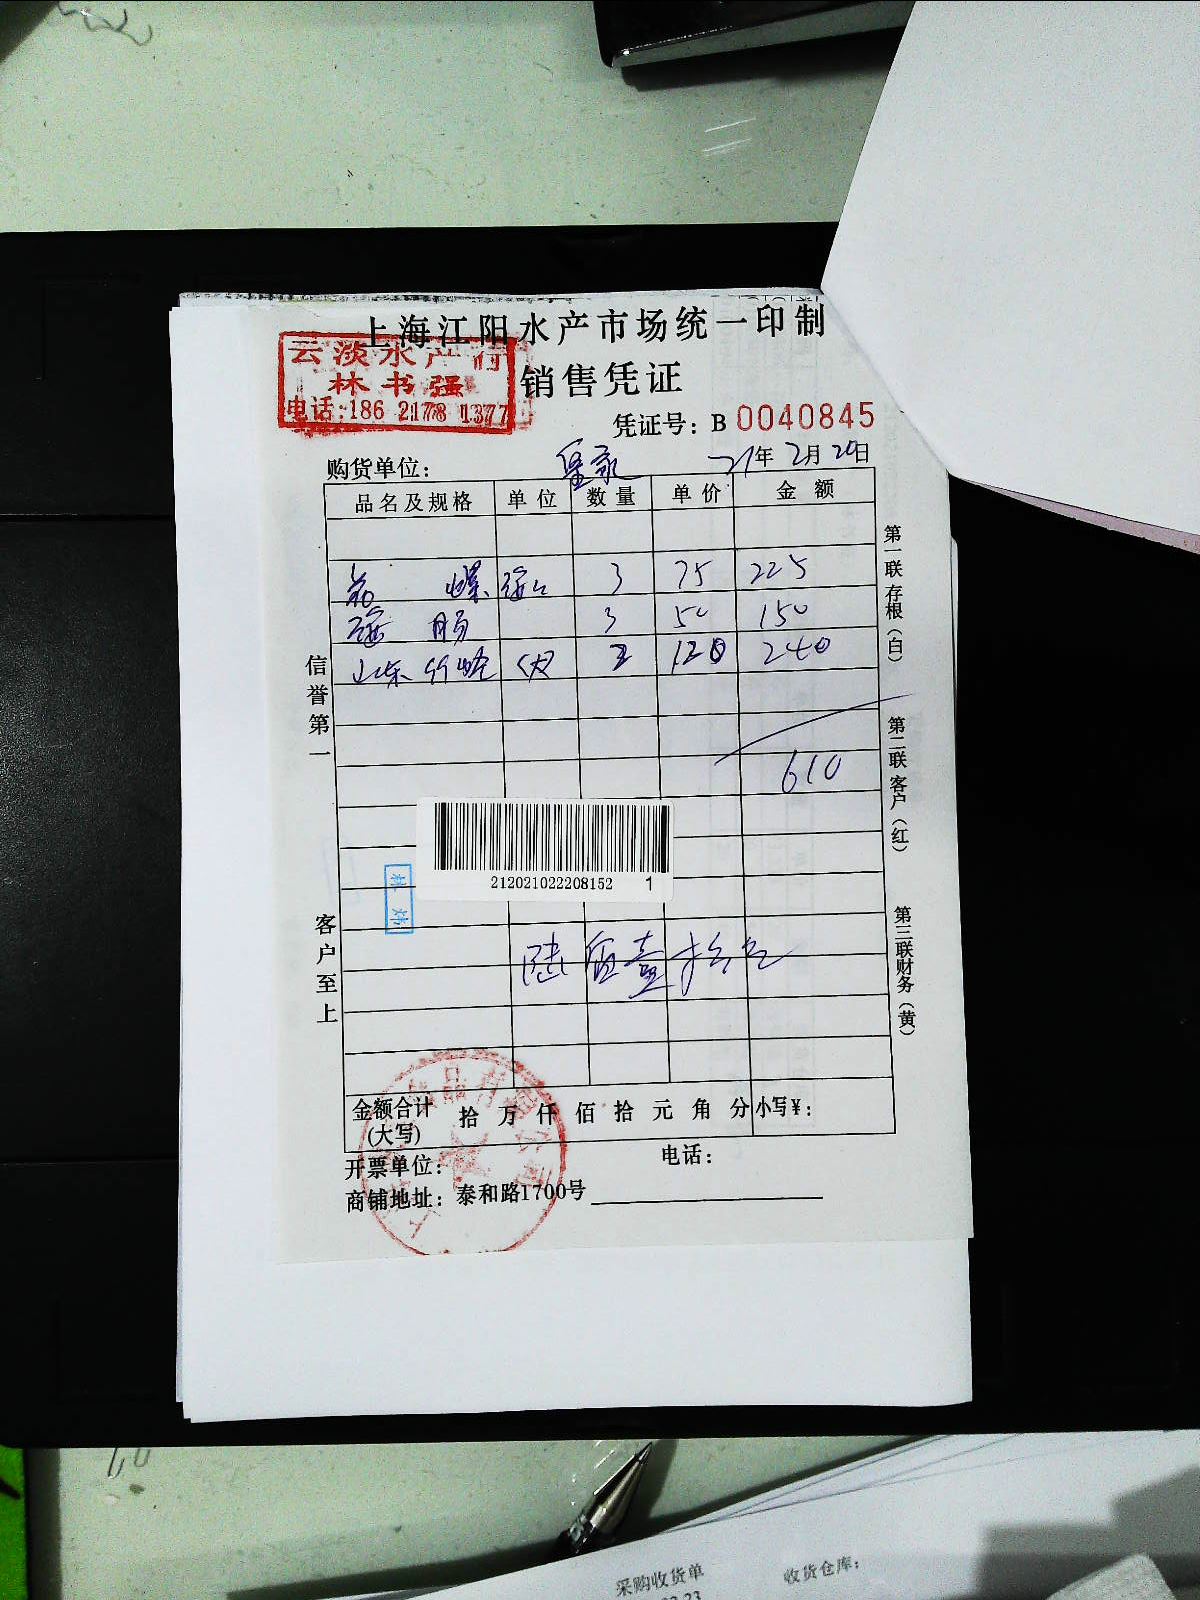 上海江阳水产市场统一印制
云淡水产行
林书强
电话:186 2178 1377
销售凭证
凭证号: B 0040845
购货单位:
21年 2月 20日
品名及规格 单位 数量 单价 金额
3 75 225
3 50 150
山东 2 120 240
610
212021022208152 1
陆佰壹拾元
金额合计(大写) 拾 万 仟 佰 拾 元 角 分 小写¥:
开票单位: 电话:
商铺地址: 泰和路1700号
信誉第一
客户至上
第一联存根(白)
第二联客户(红)
第三联财务(黄)
采购收货单 收货仓库: